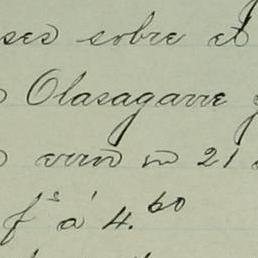 ses sobre et
Olasagarre
en 21
fs á 4.60